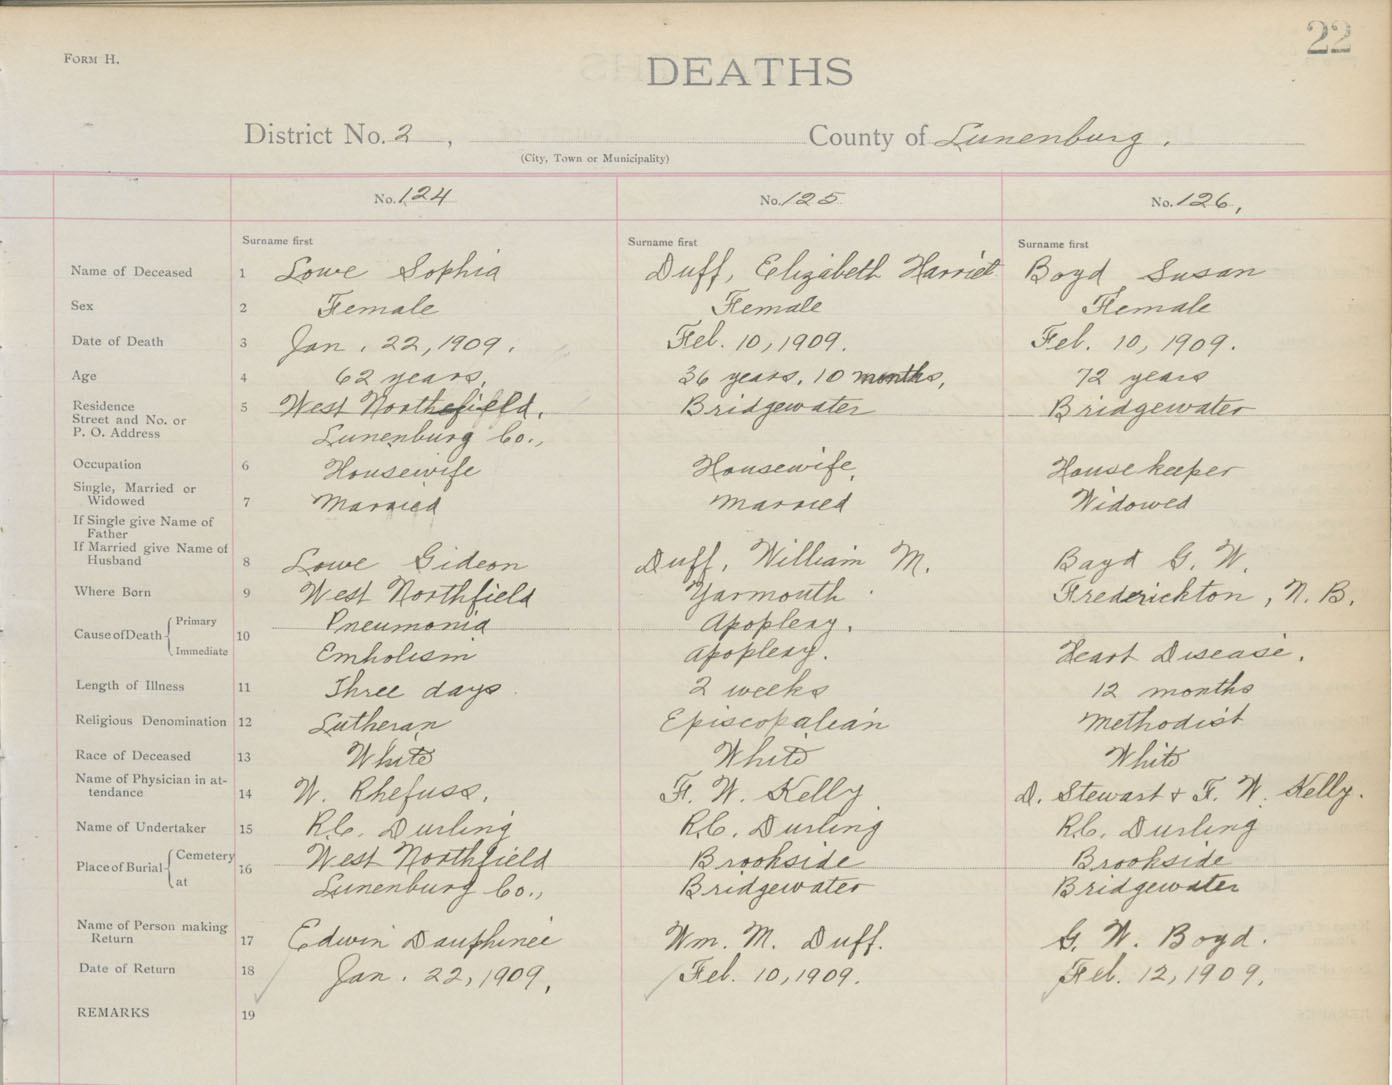 22
FORM H.
DEATHS
District No. 2, County of Lunenburg.
(City, Town or Municipality)
No. 124 No. 125 No. 126,
Surname first Surname first Surname first
Name of Deceased 1 Lowe Sophia Duff, Elizabeth Harriet Boyd Susan
Sex 2 Female Female Female
Date of Death 3 Jan. 22, 1909. Feb. 10, 1909. Feb. 10, 1909.
Age 4 62 years, 36 years, 10 months, 72 years
Residence 5 West Northefield, Bridgewater Bridgewater
Street and No. or
P. O. Address Lunenburg Co.,
Occupation 6 Housewife Housewife, Housekeeper
Single, Married or
Widowed 7 Married Married Widowed
If Single give Name of
Father
If Married give Name of
Husband 8 Lowe Gideon Duff, William M. Boyd G. W.
Where Born 9 West Northfield Yarmouth Frederickton, N. B.
Cause of Death 10 Primary Pneumonia Apoplexy.
Immediate Embolism Apoplexy. Heart Disease.
Length of Illness 11 Three days 2 weeks 12 months
Religious Denomination 12 Lutheran Episcopalian Methodist
Race of Deceased 13 White White White
Name of Physician in at-
tendance 14 W. Rhefuss. F. W. Kelly D. Stewart + F. W. Kelly.
Name of Undertaker 15 R.C. Durling R.C. Durling R.C. Durling
Place of Burial 16 Cemetery West Northfield Brookside Brookside
at Lunenburg Co., Bridgewater Bridgewater
Name of Person making
Return 17 Edwin Dauphinee Wm. M. Duff. G. W. Boyd.
Date of Return 18 Jan. 22, 1909, Feb. 10, 1909. Feb. 12, 1909.
REMARKS 19